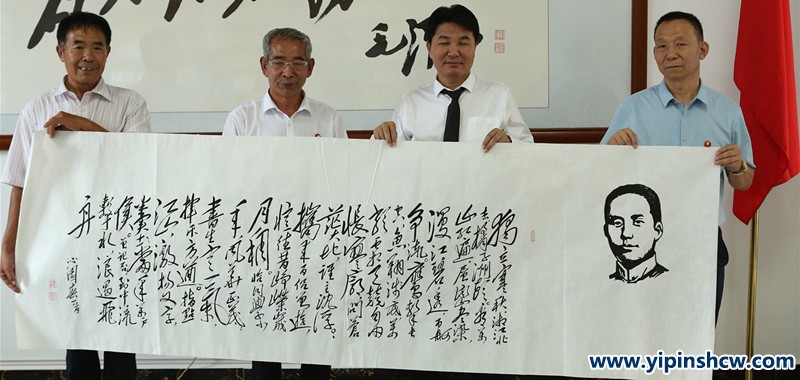 獨立寒秋湘江北
去橘子洲头看万
山红遍层林尽染
漫江碧透百舸
争流鹰击长
空鱼翔浅底万
类霜天竞自由
怅寥廓问苍
茫大地谁主沉浮
携来百侣曾游
忆往昔峥嵘岁
月稠恰同学少
年风华正茂
书生意气
挥斥方遒指点
江山激扬文字
粪土当年万户
侯曾记否到中流
击水浪遏飞
舟
www.yipinshcw.com